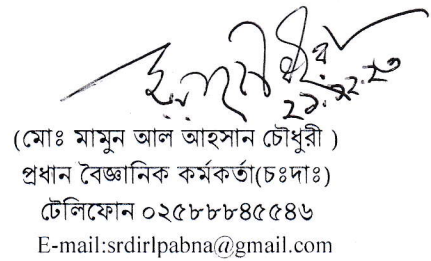 ২১.১২.২৩
(মোঃ মামুন আল আহসান চৌধুরী )
প্রধান বৈজ্ঞানিক কর্মকর্তা(চঃদাঃ)
টেলিফোন ০২৫৮৮৮৪৫৫৪৬
E-mail:srdirlpabna@gmail.com